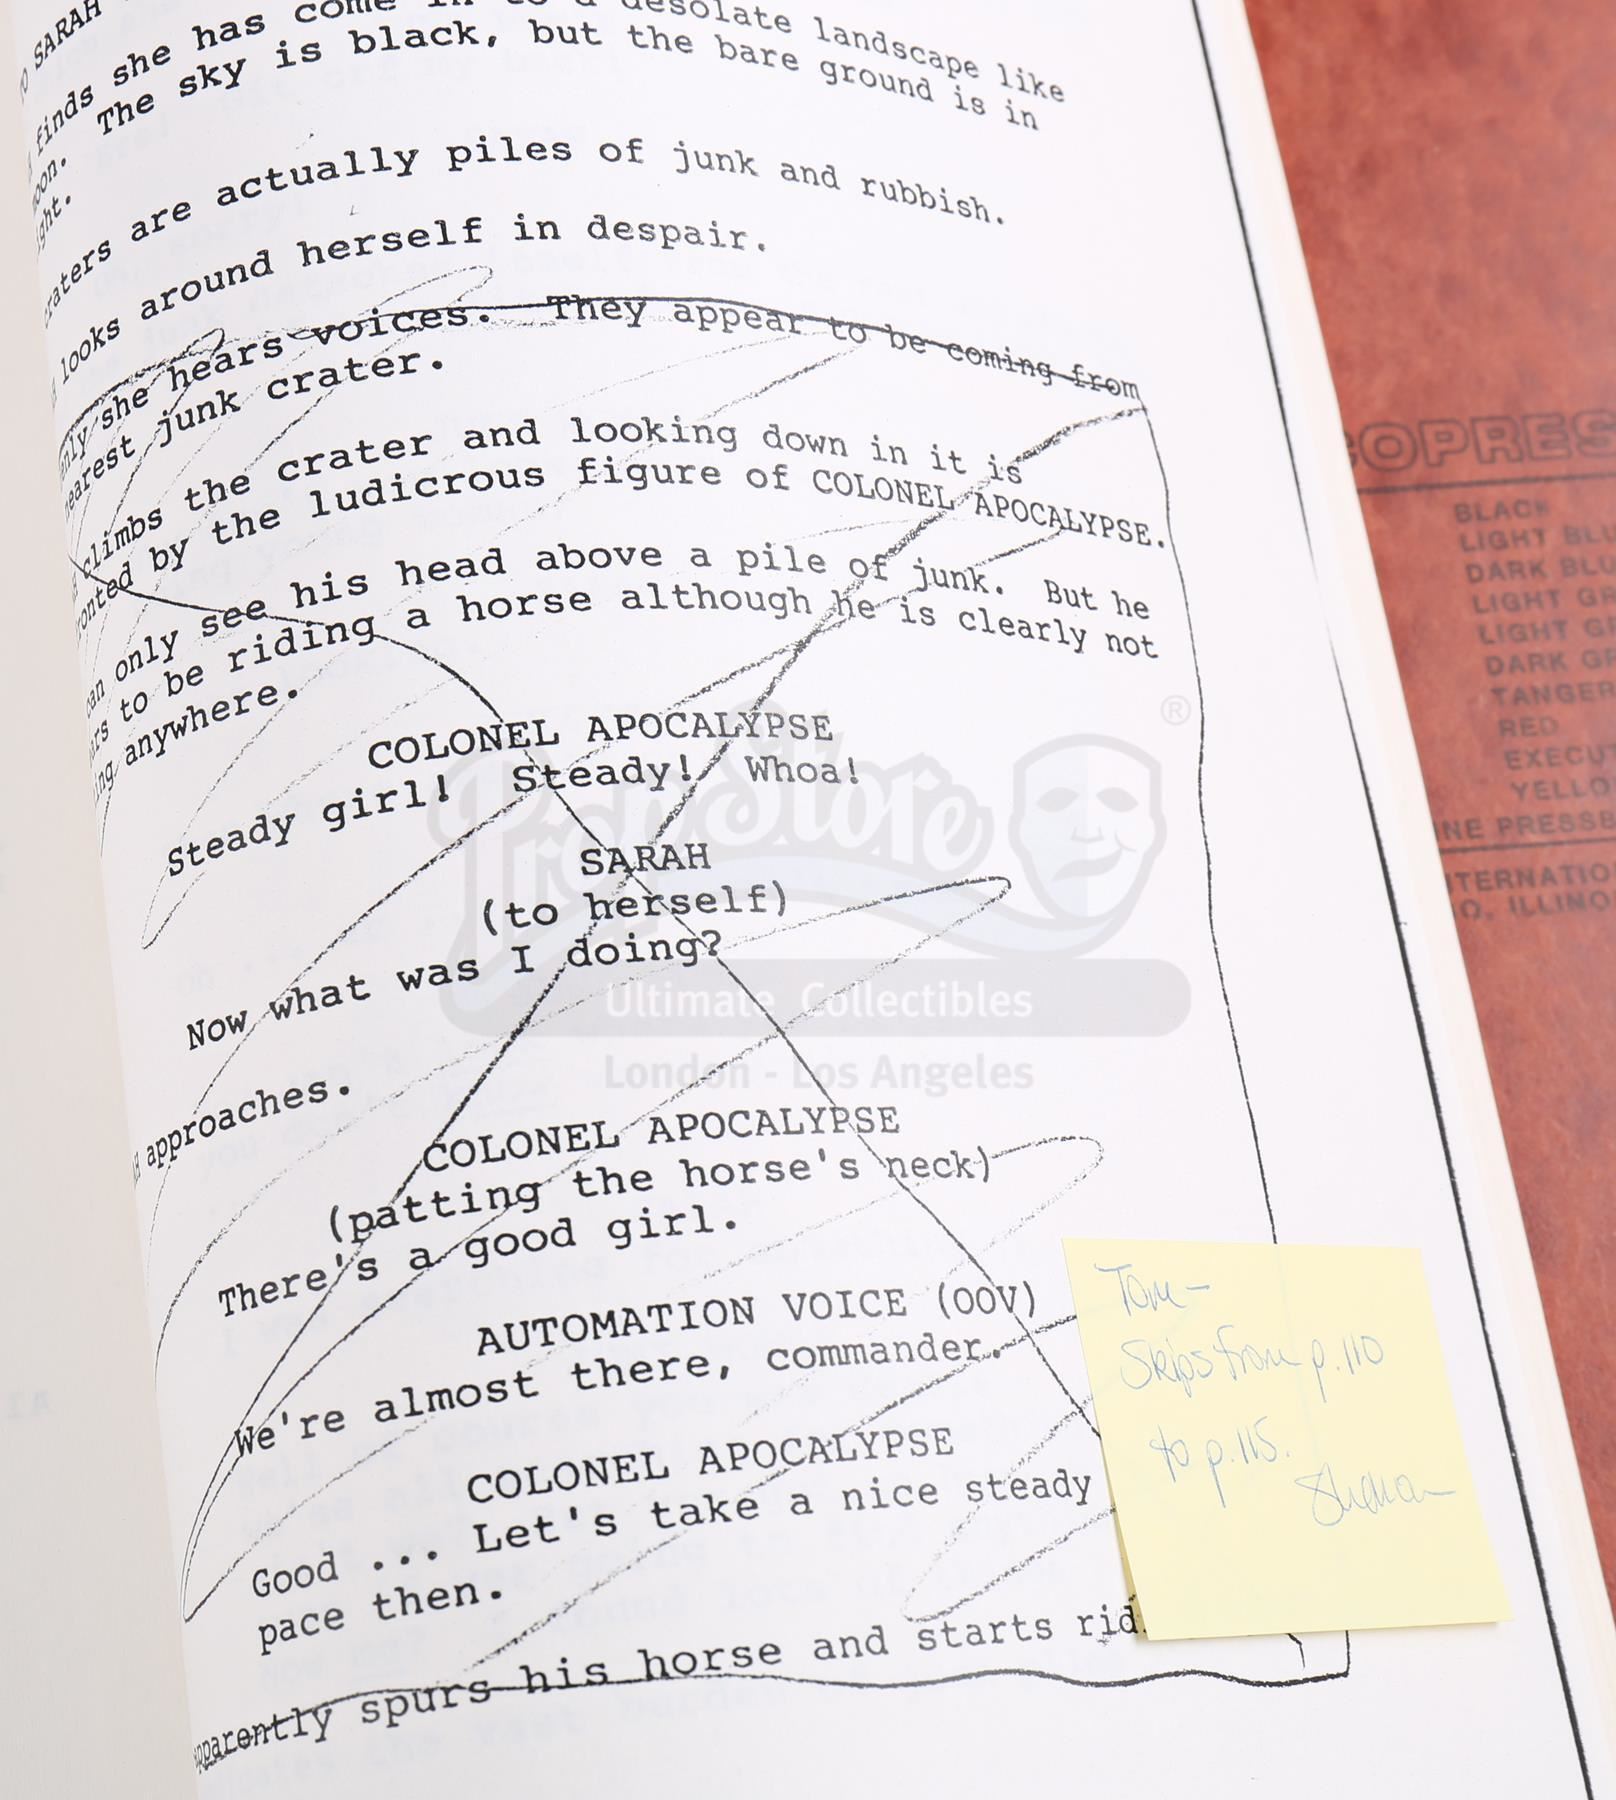 TO SARAH
finds she has come in to a desolate landscape like
moon. The sky is black, but the bare ground is in
ght.
craters are actually piles of junk and rubbish.
looks around herself in despair.
nly she hears voices. They appear to be coming from
nearest junk crater.
climbs the crater and looking down in it is
ronted by the ludicrous figure of COLONEL APOCALYPSE.
can only see his head above a pile of junk. But he
ars to be riding a horse although he is clearly not
ing anywhere.
COLONEL APOCALYPSE
Steady girl! Steady! Whoa!
SARAH
(to herself)
Now what was I doing?
approaches.
COLONEL APOCALYPSE
(patting the horse's neck)
There's a good girl.
AUTOMATION VOICE (OOV)
We're almost there, commander.
COLONEL APOCALYPSE
Good ... Let's take a nice steady
pace then.
pparently spurs his horse and starts rid
Tom-
Skips from p.110
to p.115.
COPRES
BLACK
LIGHT BLU
DARK BLU
LIGHT GR
LIGHT GR
DARK GR
TANGER
RED
EXECUT
YELLO
INE PRESSB
NTERNATIO
O, ILLINO
PropStore ®
Ultimate Collectibles
London - Los Angeles